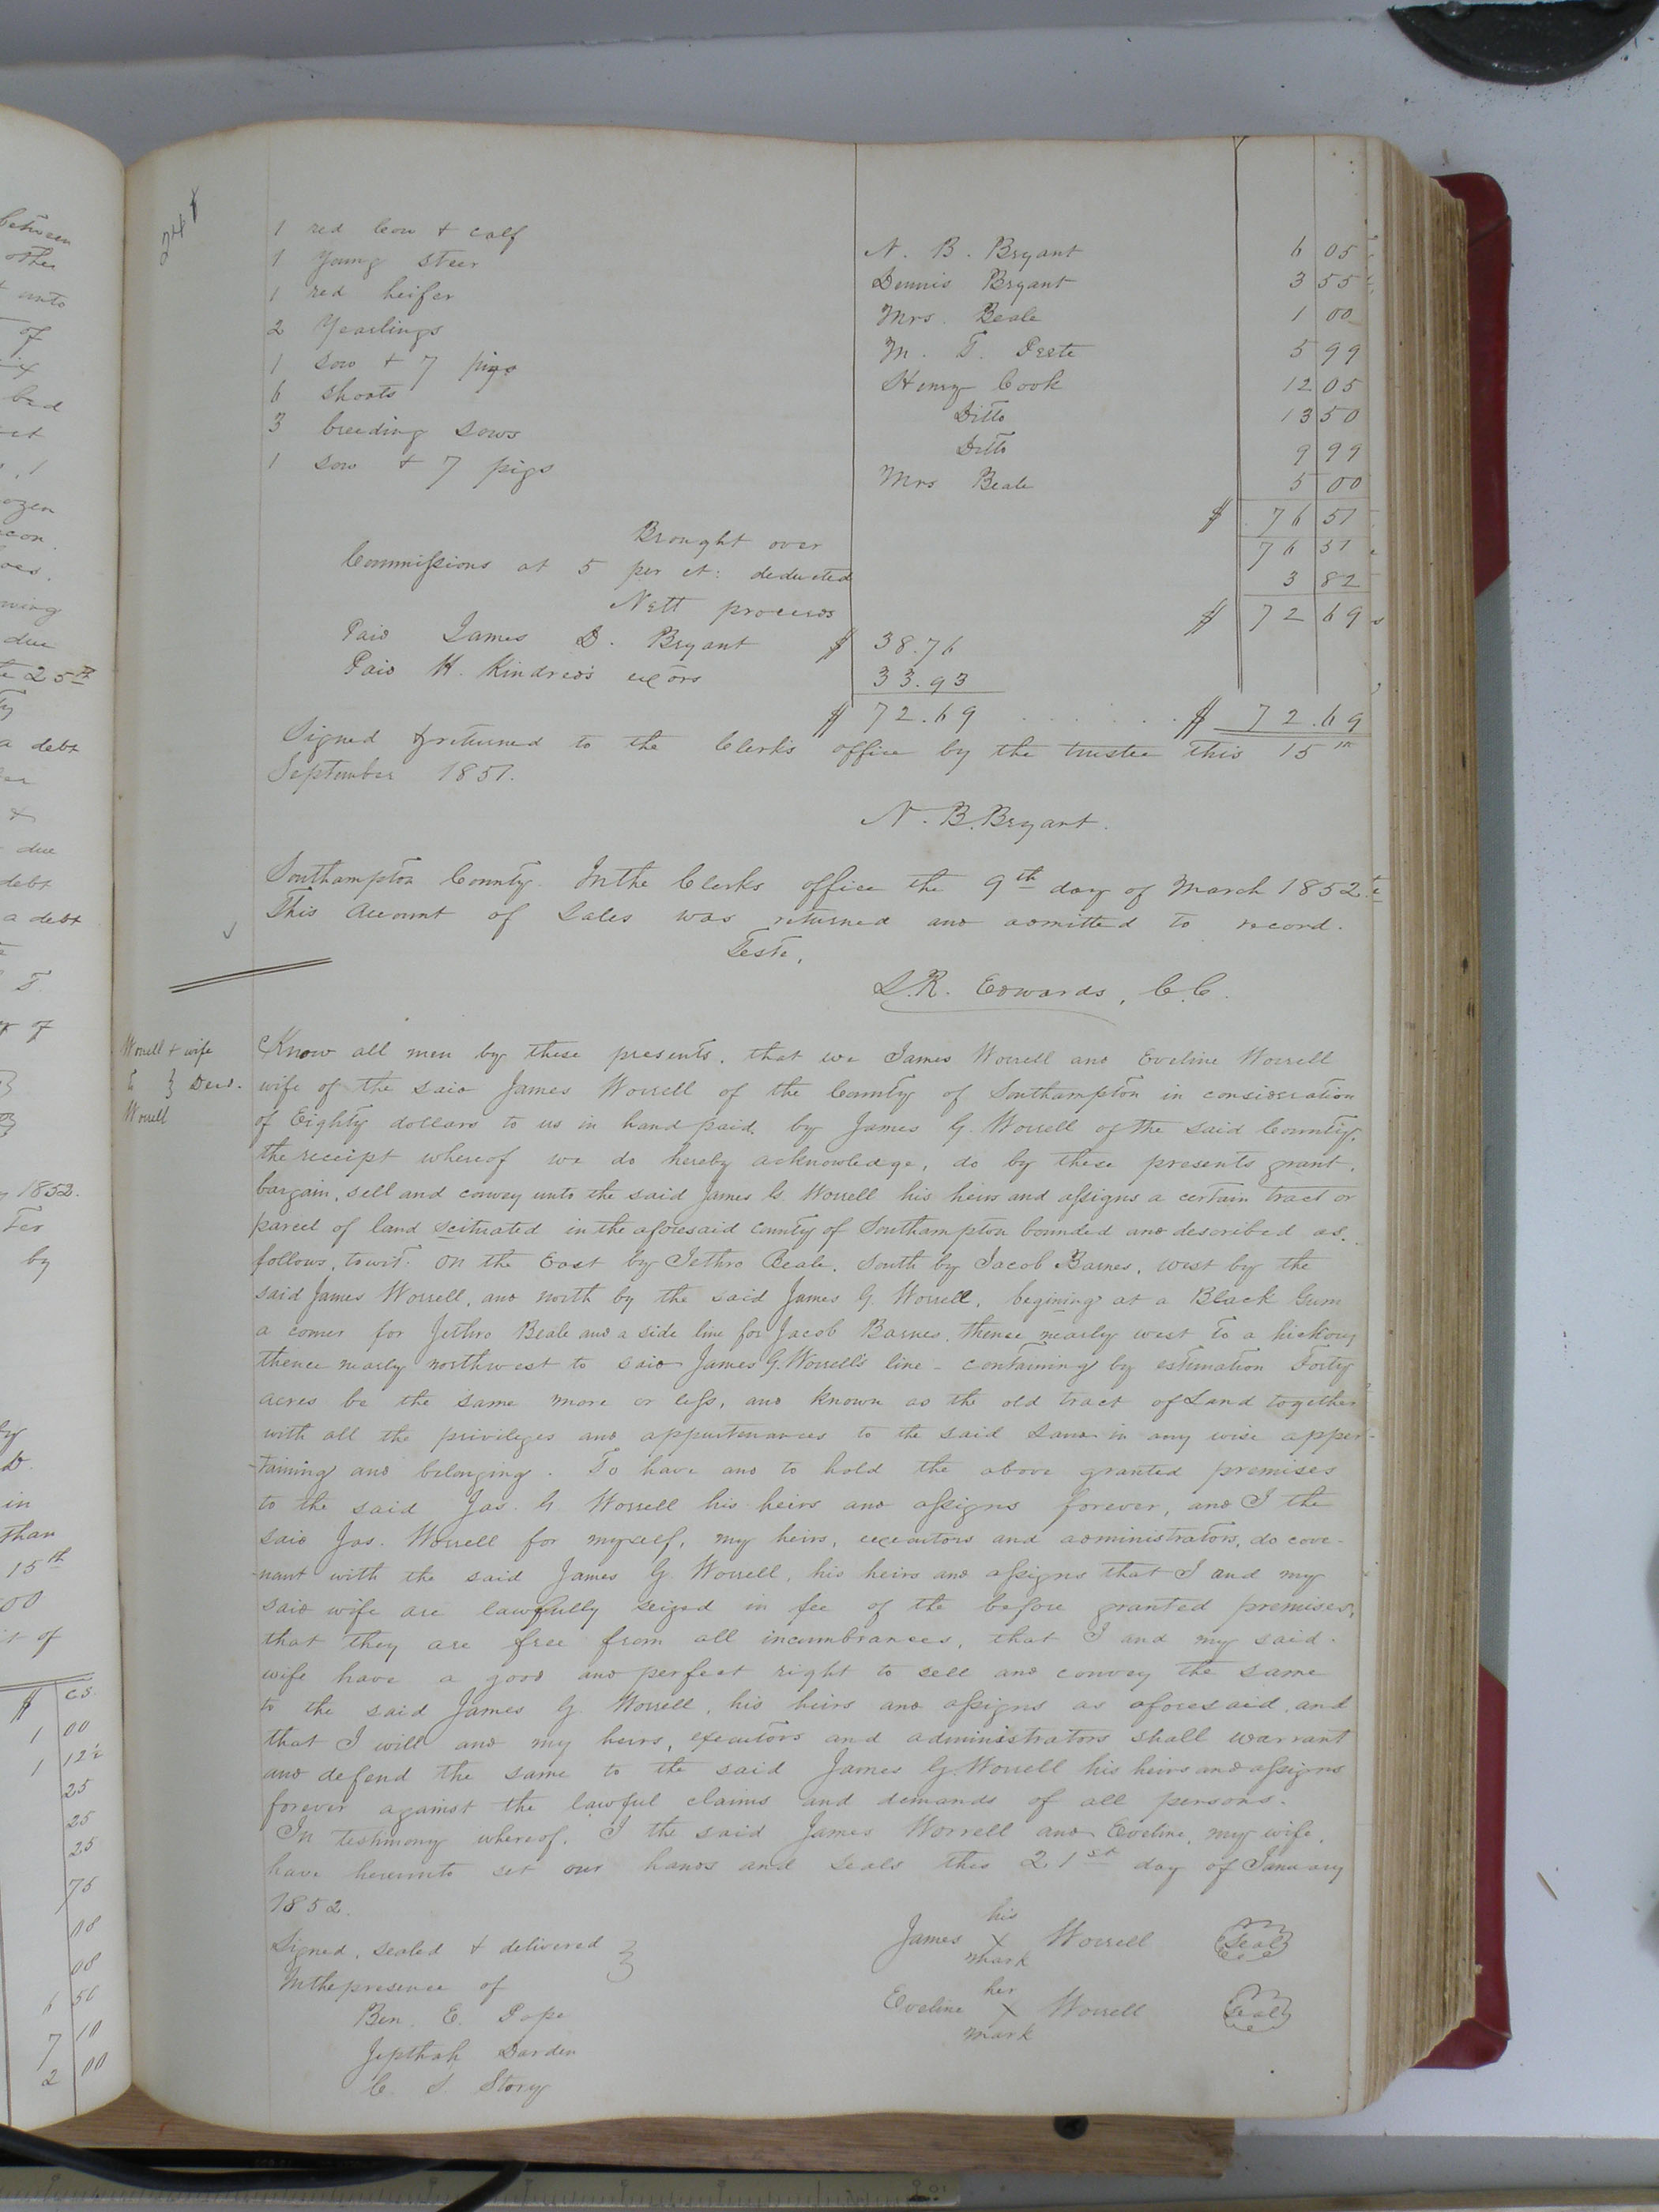 241
1 red Cow & calf N. B. Bryant 6 05
1 Young steer Dennis Bryant 3 55
1 red heifer Mrs. Beale 1 00
2 Yearlings M. T. Peete 5 99
1 sow & 7 pigs Henry Cook 12 05
6 shoats Ditto 13 50
3 breeding sows Ditto 9 99
1 sow & 7 pigs Mrs Beale 5 00
$ 76 51
Brought over 76 51
Commissions at 5 per ct: deducted 3 82
Nett proceeds $ 72 69
Paid James D. Bryant $ 38.76
Paid H. Kindred's exors 33.93
$ 72.69 . . . . . . $ 72.69
Signed & returned to the Clerk's office by the trustee this 15th
September 1851.
N. B. Bryant.
Southampton County. In the Clerks office the 9th day of March 1852.
This account of sales was returned and admitted to record.
Teste,
L. R. Edwards, C.C.
Worrell & wife
to } Deed.
Worrell
Know all men by these presents, that we James Worrell and Eveline Worrell
wife of the said James Worrell of the County of Southampton in consideration
of Eighty dollars to us in hand paid, by James G. Worrell of the said County,
the receipt whereof we do hereby acknowledge, do by these presents grant,
bargain, sell and convey unto the said James G. Worrell his heirs and assigns a certain tract or
parcel of land scituated in the aforesaid county of Southampton bounded and described as
follows, towit: On the East by Jethro Beale, South by Jacob Barnes, west by the
said James Worrell, and north by the said James G. Worrell, begining at a Black Gum
a corner for Jethro Beale and a side line for Jacob Barnes, thence nearly west to a hickory
thence nearly northwest to said James G. Worrell's line - containing by estimation Forty
acres be the same more or less, and known as the old tract of Land together
with all the privileges and appurtenances to the said Land in any wise apper-
-taining and belonging. To have and to hold the above granted premises
to the said Jas. G. Worrell his heirs and assigns forever, and I the
said Jas. Worrell for myself, my heirs, executors and administrators, do cove-
-nant with the said James G. Worrell, his heirs and assigns that I and my
said wife are lawfully seized in fee of the before granted premises,
that they are free from all incumbrances, that I and my said
wife have a good and perfect right to sell and convey the same
to the said James G. Worrell, his heirs and assigns as aforesaid, and
that I will and my heirs, executors and administrators shall warrant
and defend the same to the said James G. Worrell his heirs and assigns
forever against the lawful claims and demands of all persons.
In testimony whereof, I the said James Worrell and Eveline, my wife,
have hereunto set our hands and seals this 21st day of January
1852.
Signed, sealed & delivered }
In the presence of
Ben. E. Pope
Jepthah Darden
C. S. Story
his
James X Worrell Seal
mark
her
Eveline X Worrell Seal
mark